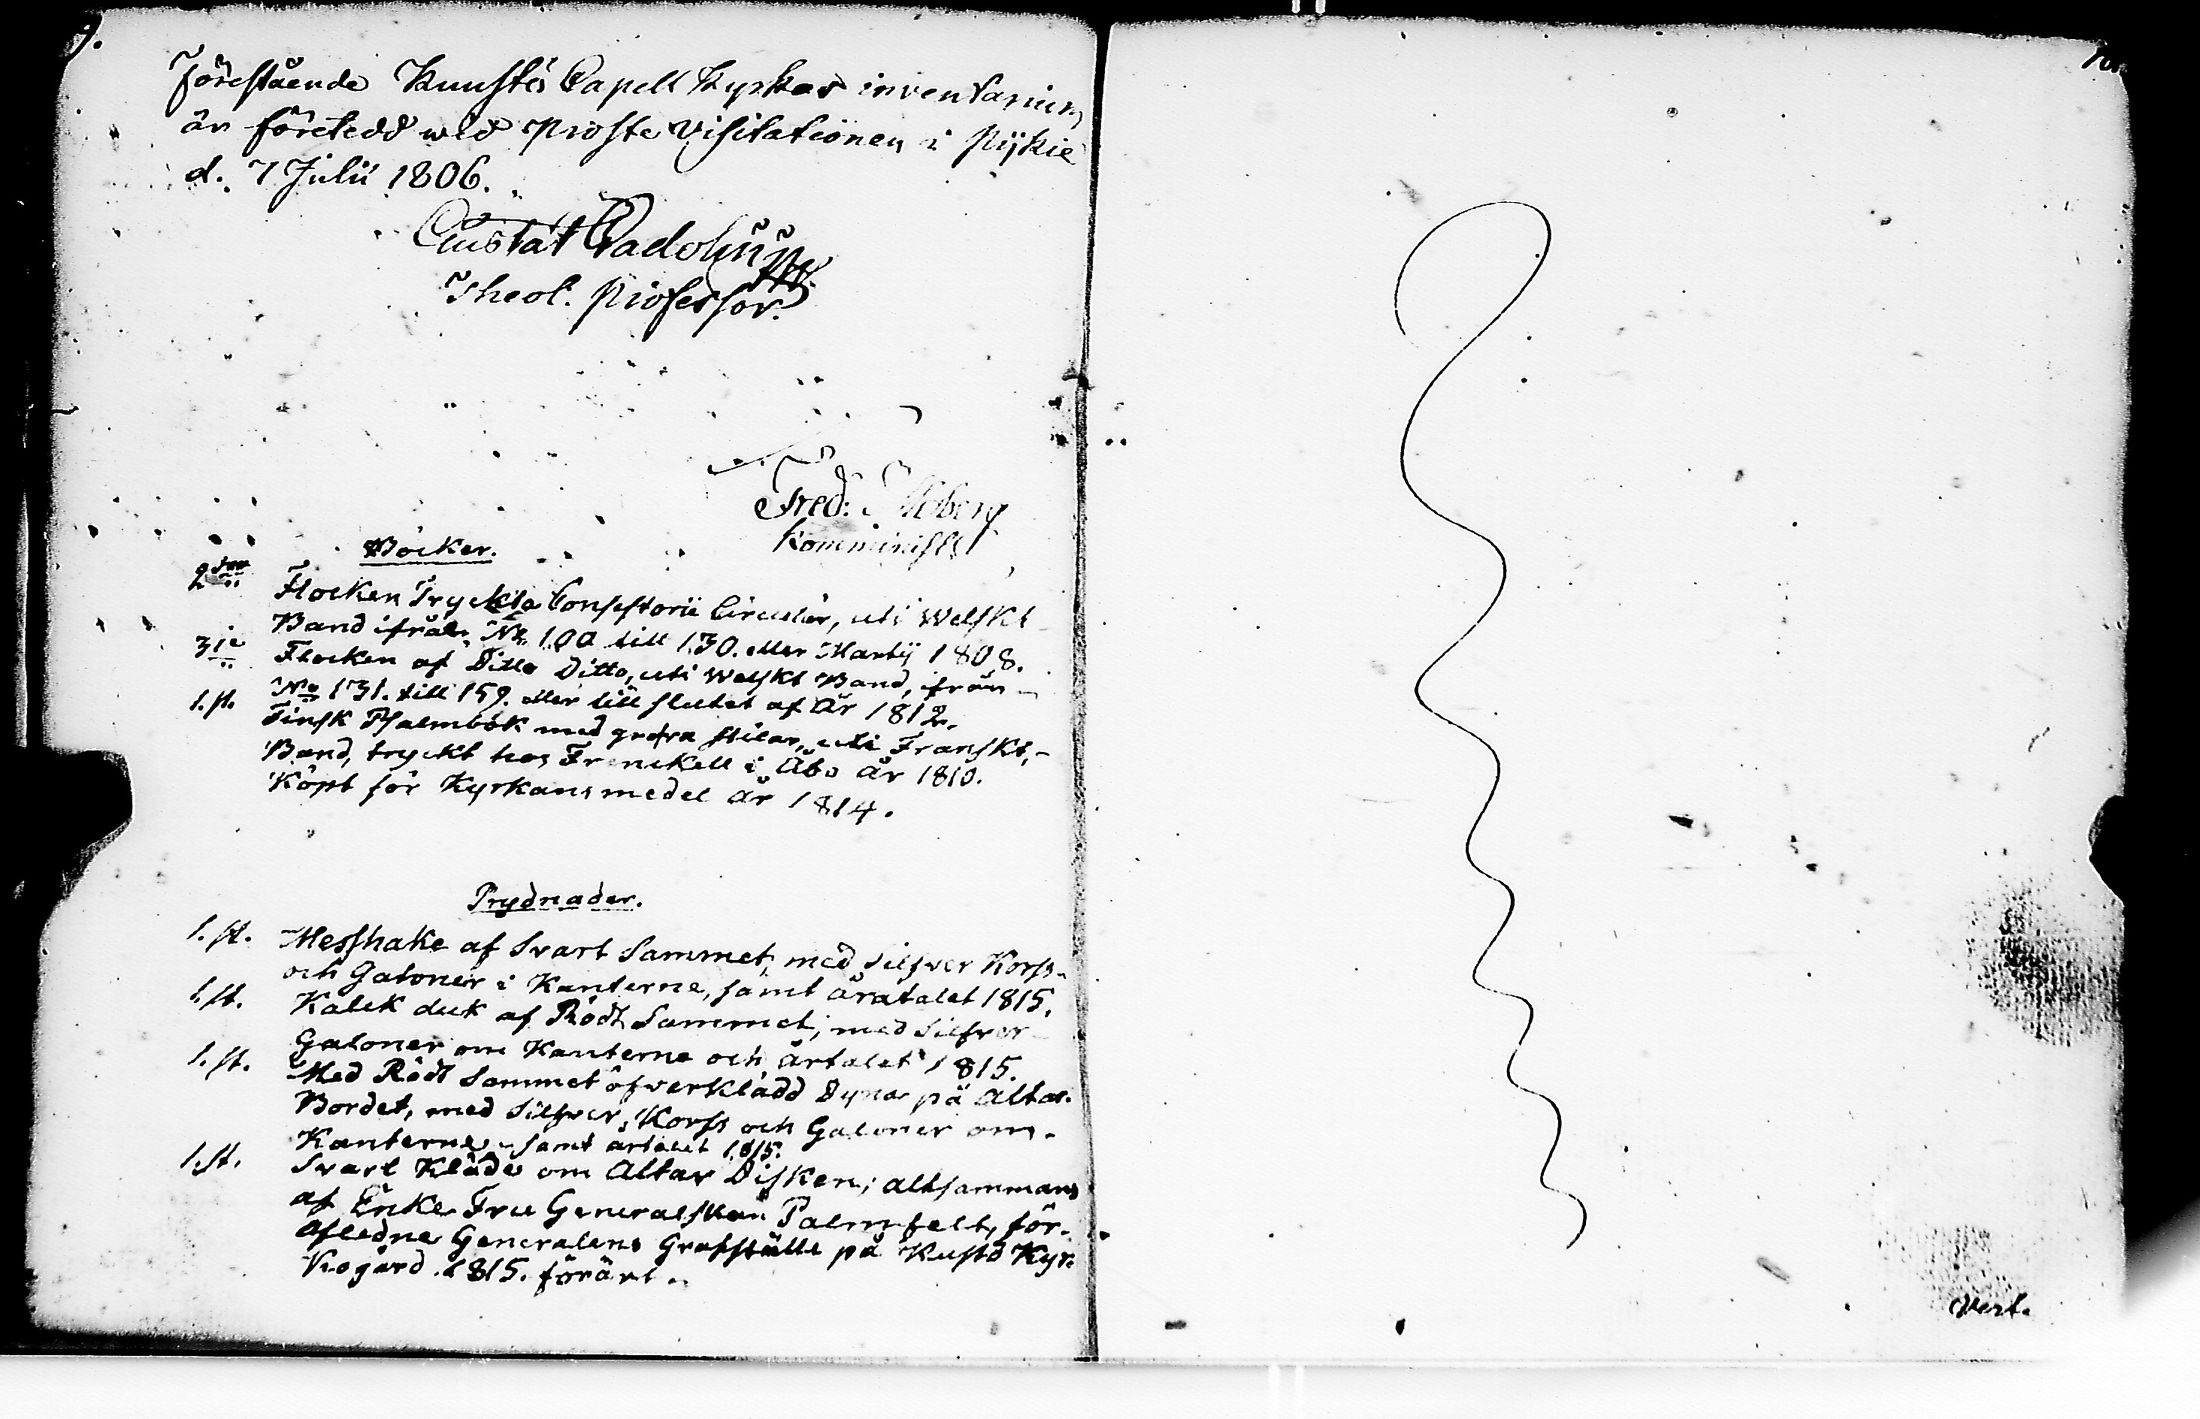 9.
Förestående Kuustö Capell Kyrkas inventarium
är företedd wid Proste Visitationen i Pijkie
d. 7 Julii 1806.
Gustaf Gadolin
Theol. Professor.
Fred:
Kominist
Böcker.
2dra Flocken Tryckta Consistorii Circulär, uti Welskt
Band ifrån No 100 till 130. eller Martij 1808.
3ie Flocken af Ditto Ditto, uti Welskt Band, ifrån
No 131. till 159. eller till slutet af År 1812.
1. st. Finsk Psalmbok med grofva stilar, uti Franskt,
Band, tryckt hos Frenckell i Åbo År 1810.
Köpt för Kyrkans medel År 1814.
Prydnader.
1. st. Messhake af Svart Sammet, med Silfver Korss
och Galoner i Kanterne, samt Åratalet 1815.
1. st. Kalk duk af Rödt Sammet, med Silfver
Galoner om Kanterne och Årtalet 1815.
1. st. Med Rödt Sammet öfverklädd Dyna på Altar
Bordet, med Silfver, Korss och Galoner om
Kanterne, samt artalet 1815.
1. st. Svart Kläde om Altar Disken; altsammans
af Enke Fru Generalskan Palmfelt, för
Afledne Generalens Grafställe på Kustö Kyr-
kogård 1815. förärt.
10.
Vert.